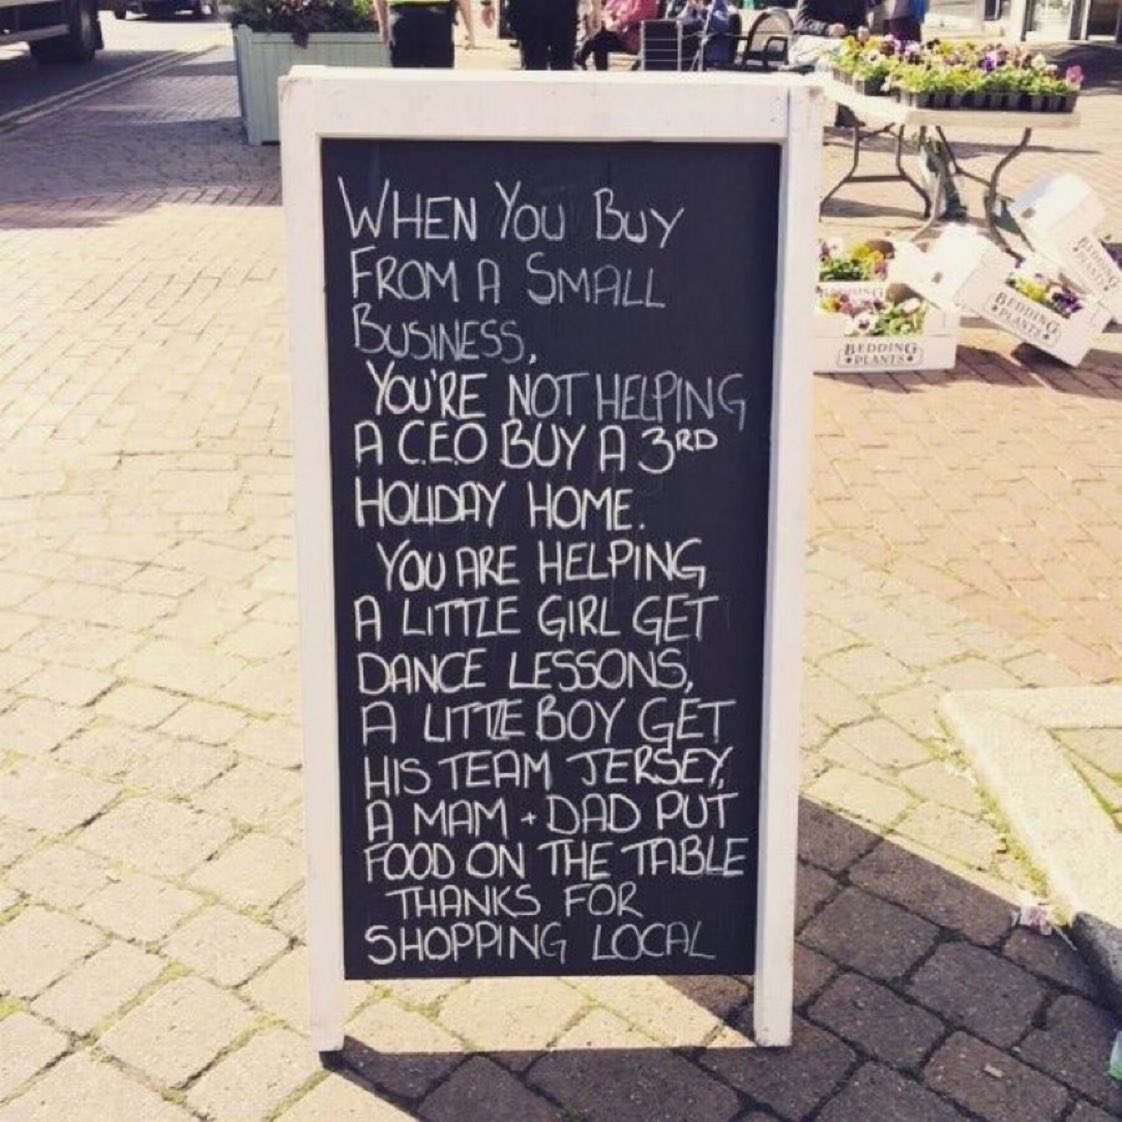 WHEN YOU BUY
FROM A SMALL
BUSINESS,
YOU'RE NOT HELPING
A C.E.O BUY A 3RD
HOLIDAY HOME.
YOU ARE HELPING
A LITTLE GIRL GET
DANCE LESSONS,
A LITTLE BOY GET
HIS TEAM JERSEY,
A MAM + DAD PUT
FOOD ON THE TABLE
THANKS FOR
SHOPPING LOCAL
BEDDING
PLANTS
BEDDING
PLANTS